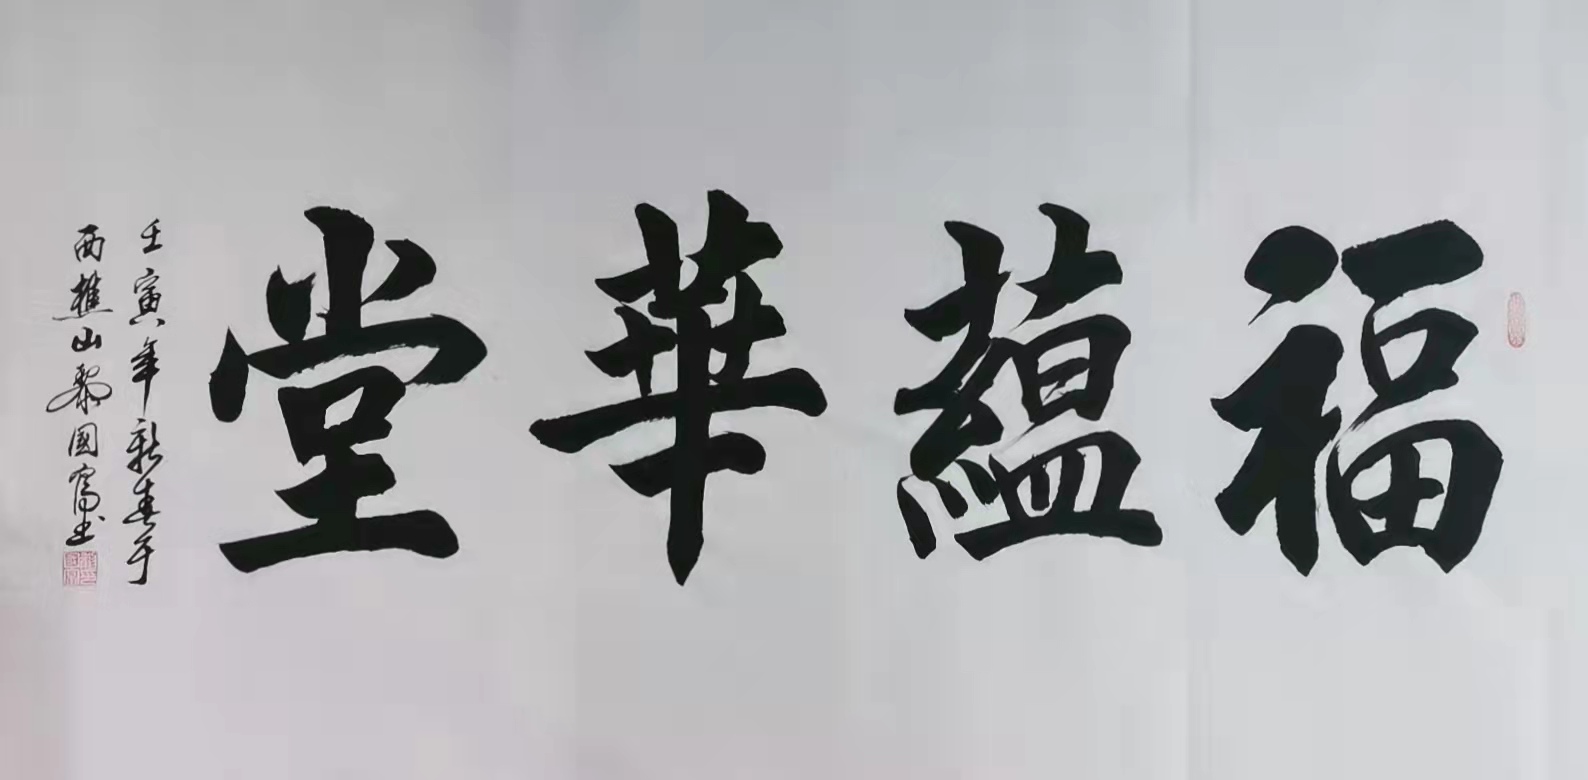 福蘊華堂
壬寅年新春于
西樵山黎國富书